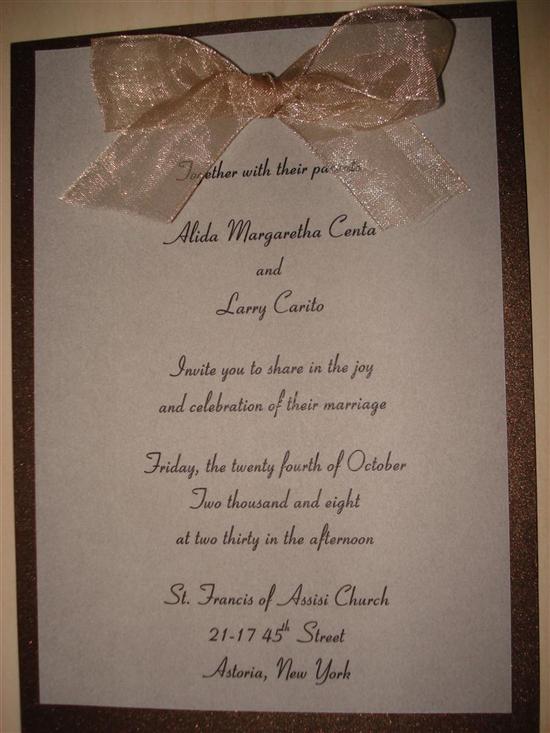 Together with their parents
Alida Margaretha Centa
and
Larry Carito
Invite you to share in the joy
and celebration of their marriage
Friday, the twenty fourth of October
Two thousand and eight
at two thirty in the afternoon
St. Francis of Assisi Church
21-17 45th Street
Astoria, New York